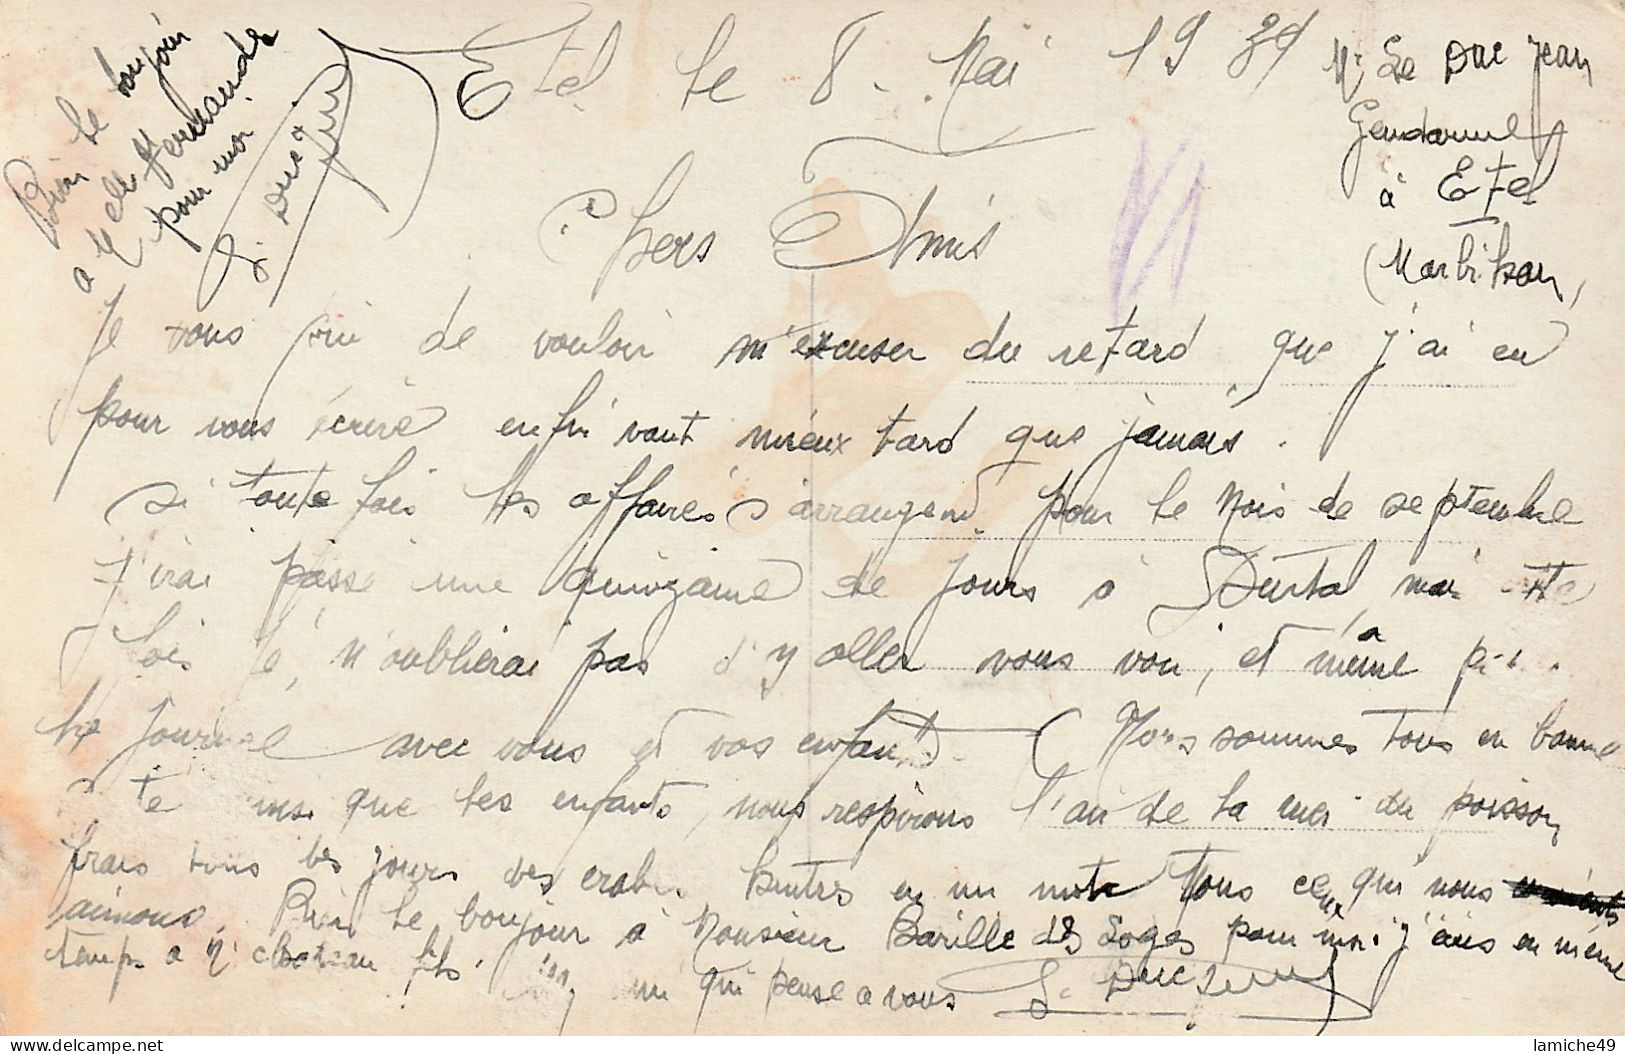 Etel le 8 Mai 1939
Mr Le Duc Jean
Gendarme
à Etel
(Morbihan)
Bien le bonjour
a Melle Fernande
pour moi
Le Duc
Chers Amis
Je vous prie de vouloir m'excuser du retard que j'ai eu
pour vous écrire enfin vaut mieux tard que jamais.
si toute fois les affaires s'arrangent pour le Mois de septembre
j'irai passé une quinzaine de jours à Durtal, mais cette
fois je n'oublierai pas d'y aller vous voir, et même
la journée avec vous et vos enfants. Nous sommes tous en bonne
que les enfants, nous respirons l'air de la mer du poisson
frais tous les jours des crabes huitres en un mot Tous ceux qui nous
aimons. Bien le bonjour à Monsieur Barille des Loges pour moi. j'écris en même
temps a Mr fils. ami qui pense a vous Le Duc Jean
lamiche49